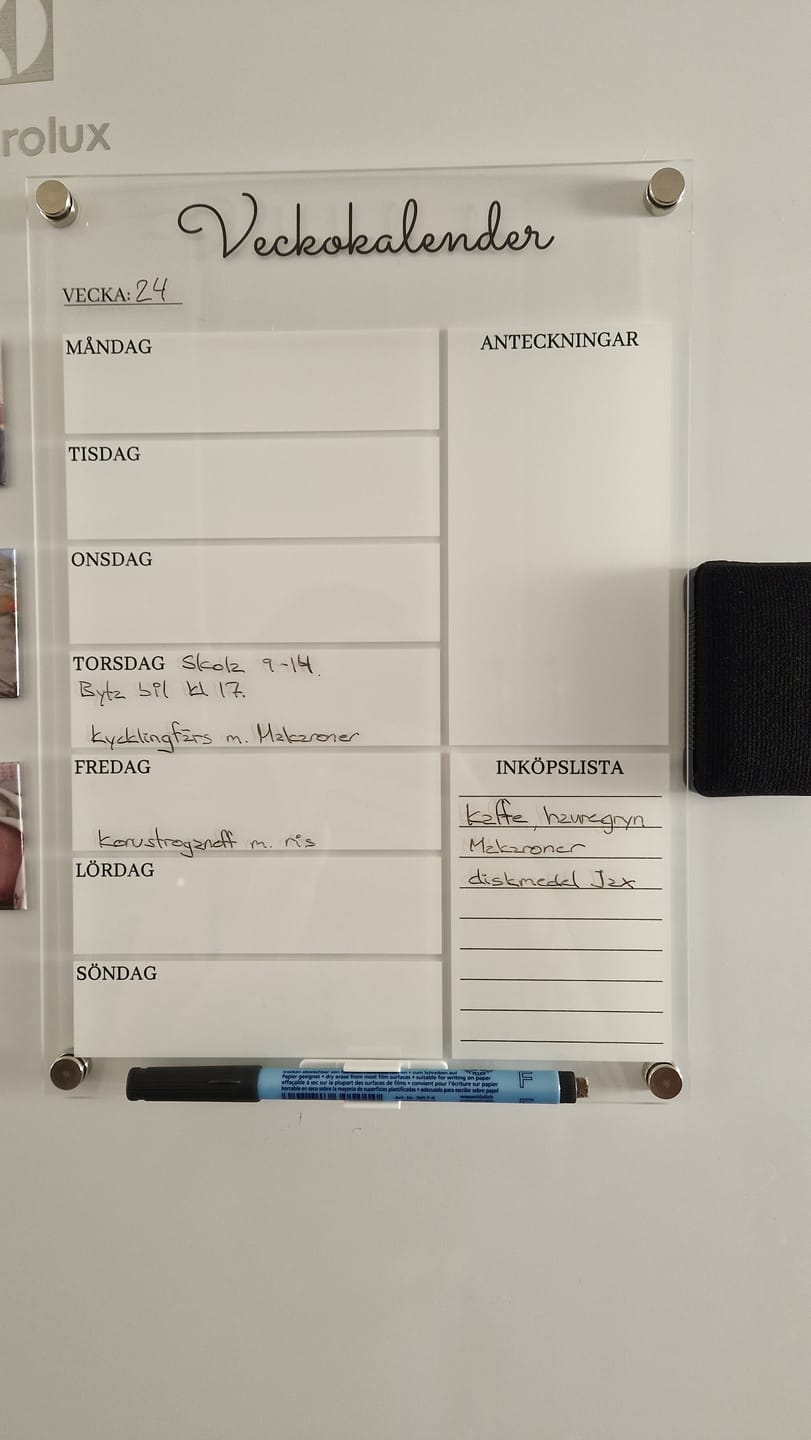 rolux
Veckokalender
VECKA: 24
MÅNDAG
TISDAG
ONSDAG
TORSDAG Skola 9-14.
Byta bil kl 17.
Kycklingfärs m. Makaroner
FREDAG
Korvstroganoff m. ris
LÖRDAG
SÖNDAG
ANTECKNINGAR
INKÖPSLISTA
Kaffe, havregryn
Makaroner
diskmedel Jax
Papier geeignet • dry erase from most film surfaces • suitable for writing on paper
effaçable à sec sur la plupart des surfaces de films • convient pour l'écriture sur papier
borrable en seco sobre la mayoría de superficies plastificadas • adecuado para escribir sobre papel
F